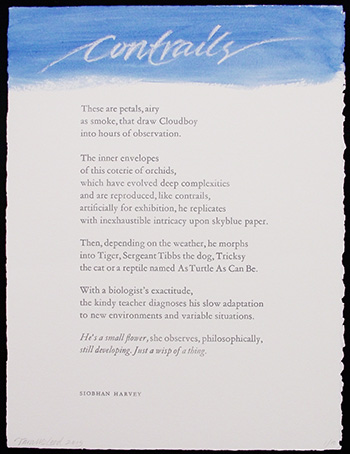 Contrails
These are petals, airy
as smoke, that draw Cloudboy
into hours of observation.
The inner envelopes
of this coterie of orchids,
which have evolved deep complexities
and are reproduced, like contrails,
artificially for exhibition, he replicates
with inexhaustible intricacy upon skyblue paper.
Then, depending on the weather, he morphs
into Tiger, Sergeant Tibbs the dog, Tricksy
the cat or a reptile named As Turtle As Can Be.
With a biologist's exactitude,
the kindy teacher diagnoses his slow adaptation
to new environments and variable situations.
He's a small flower, she observes, philosophically,
still developing. Just a wisp of a thing.
SIOBHAN HARVEY